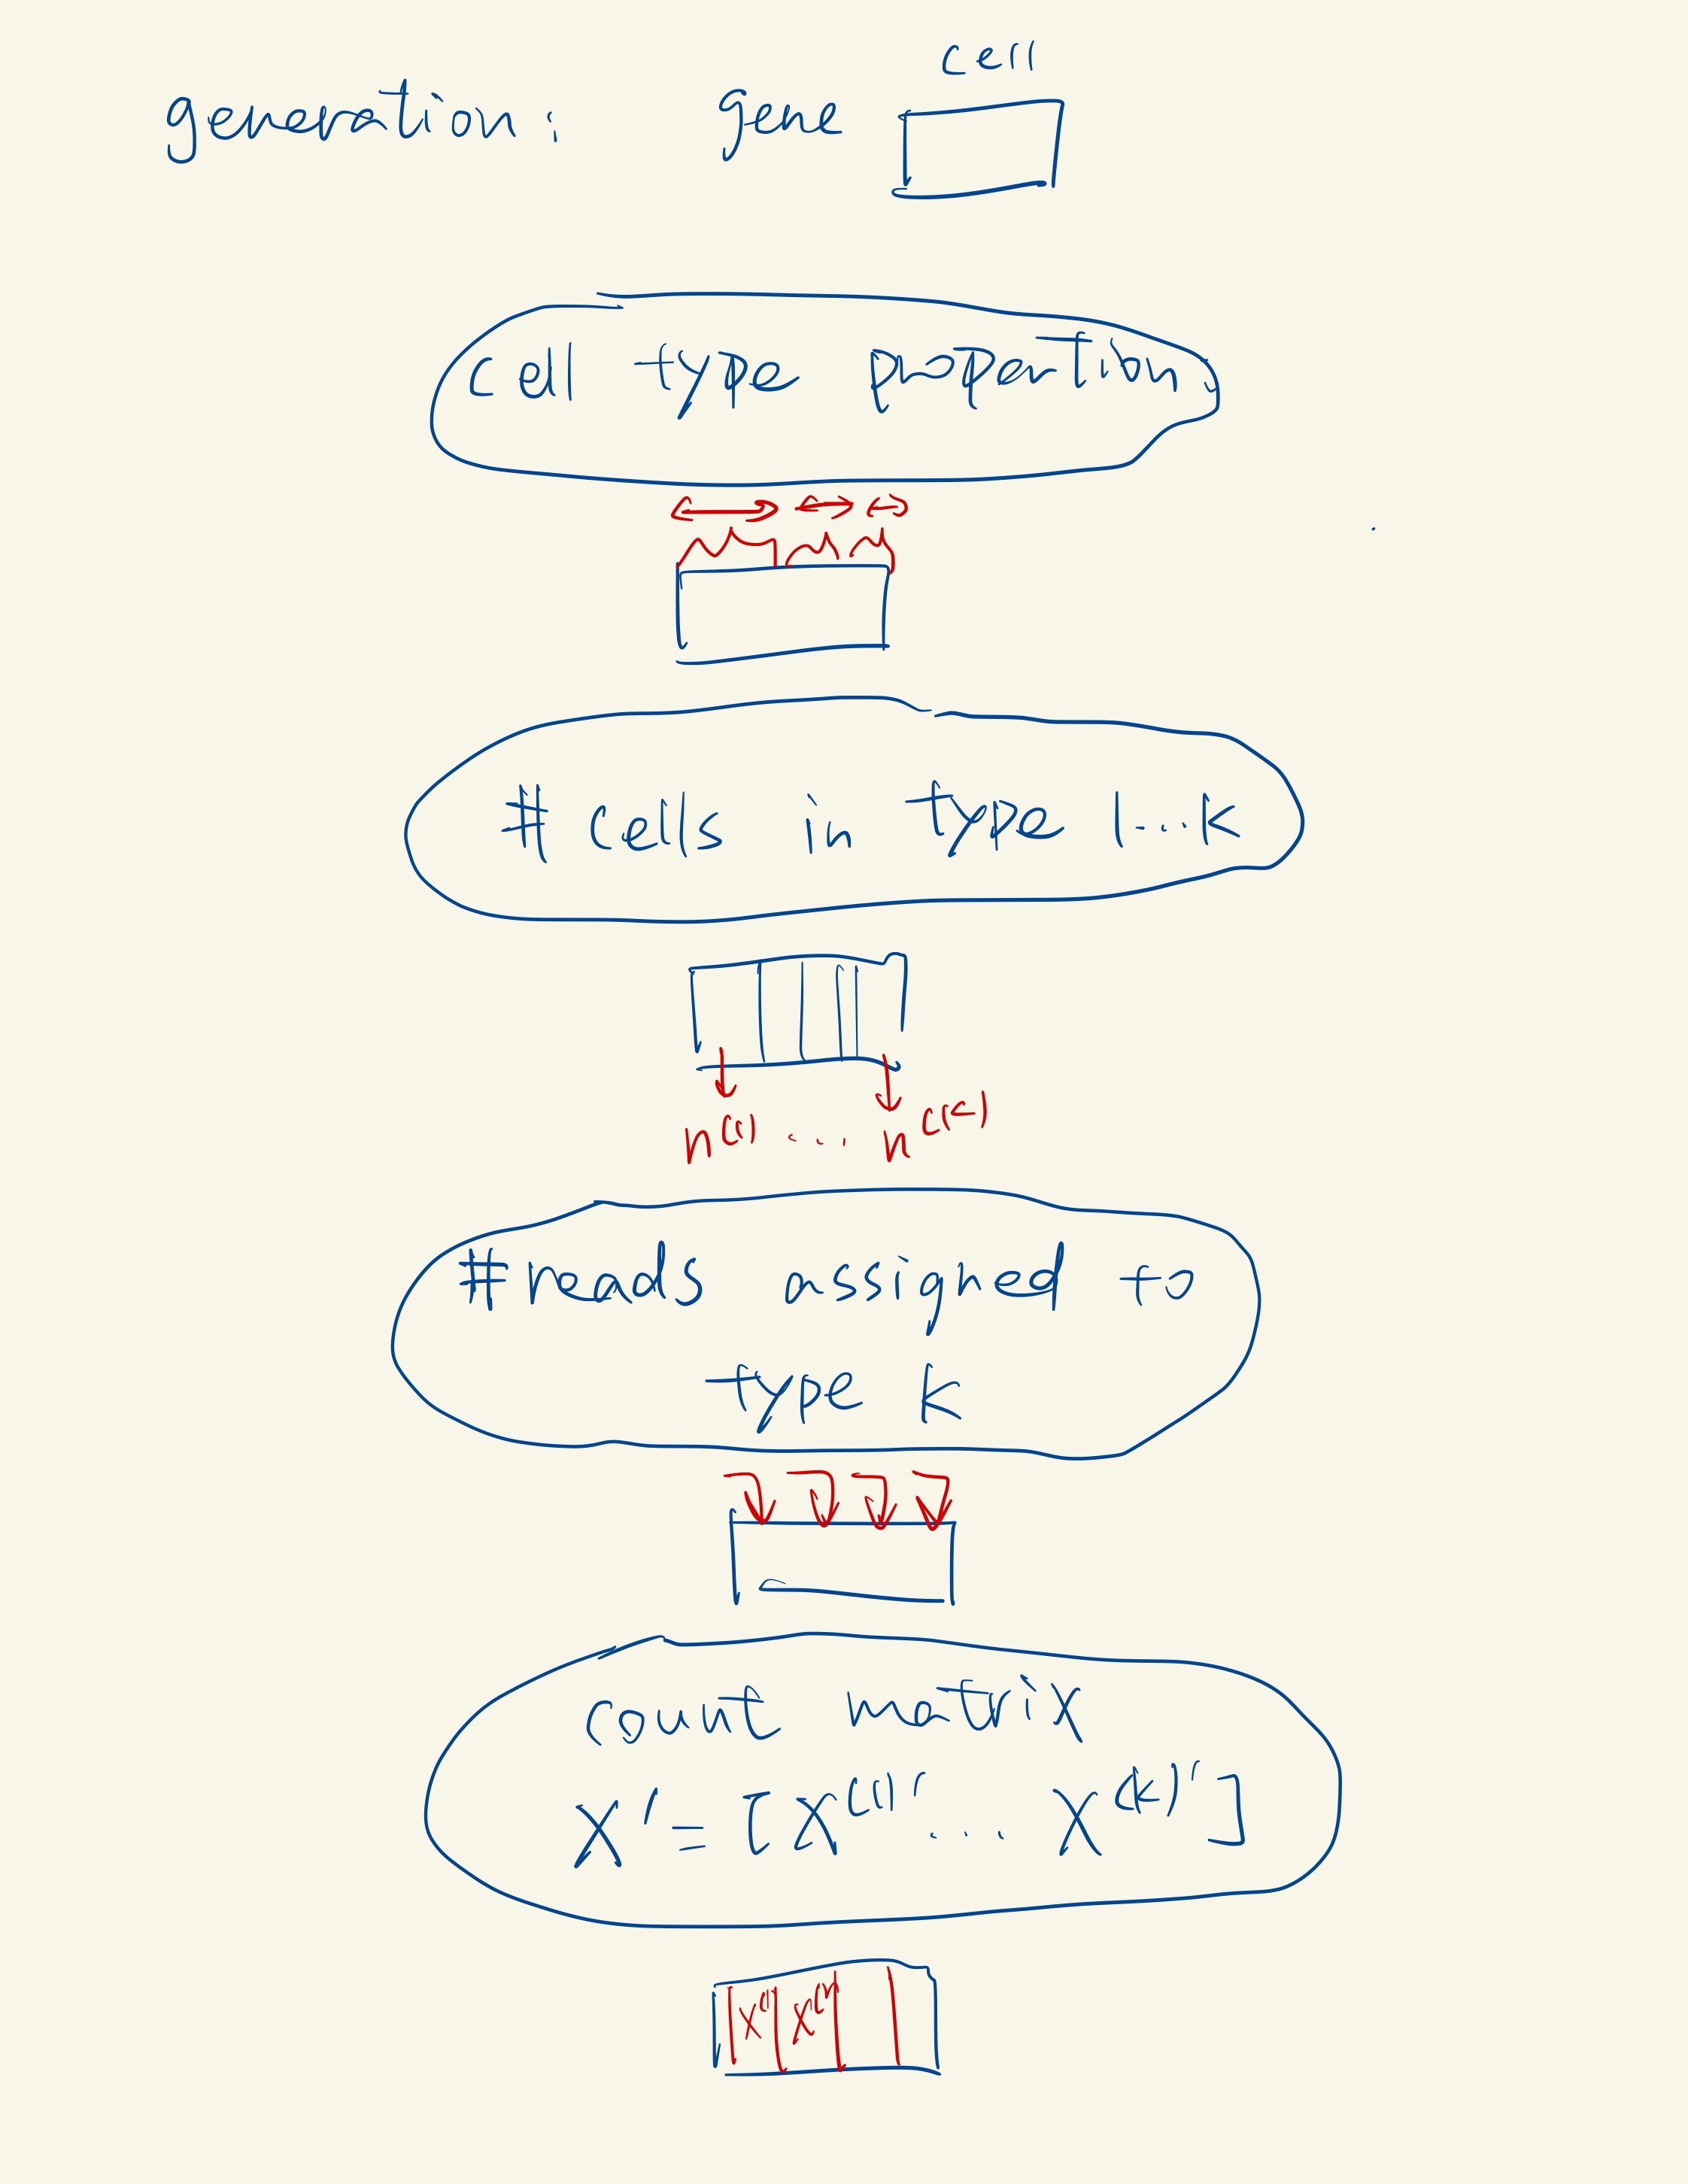 cell
generation: gene
cell type proportion
# cells in type 1...K
n^(1) ... n^(K)
# reads assigned to
type k
count matrix
X' = [X^(1)' ... X^(K)']
X^(1) X^(2)